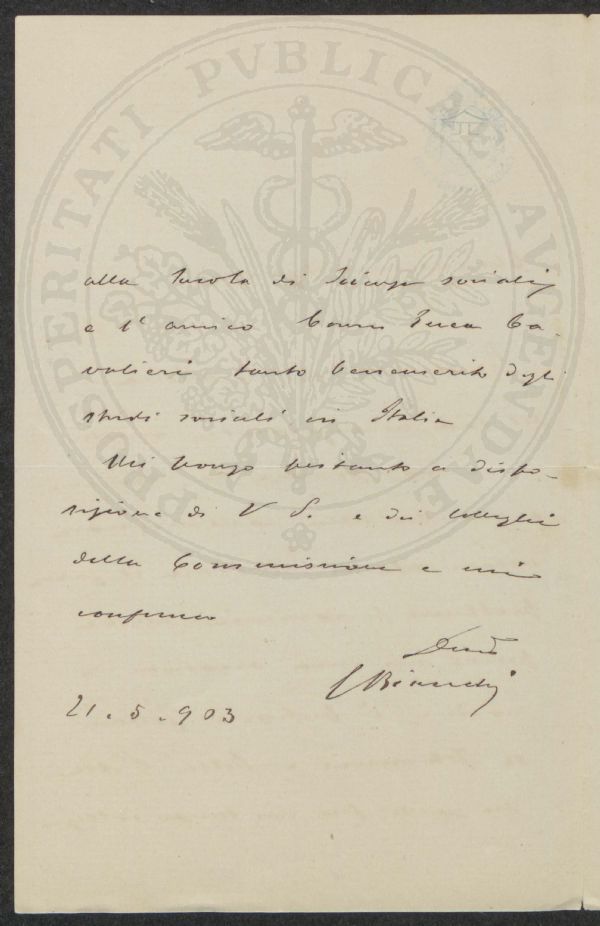 PROSPERITATI PVBLICAE AVGENDAE
alla Scuola di Scienze sociali,
e l'amico Comm Enea Ca-
valieri tanto benemerito degli
studi sociali in Italia
Mi pongo pertanto a dispo-
sizione di V S. e dei Colleghi
della Commissione e mi
confermo
Devo
Bianchi
21. 5. 903